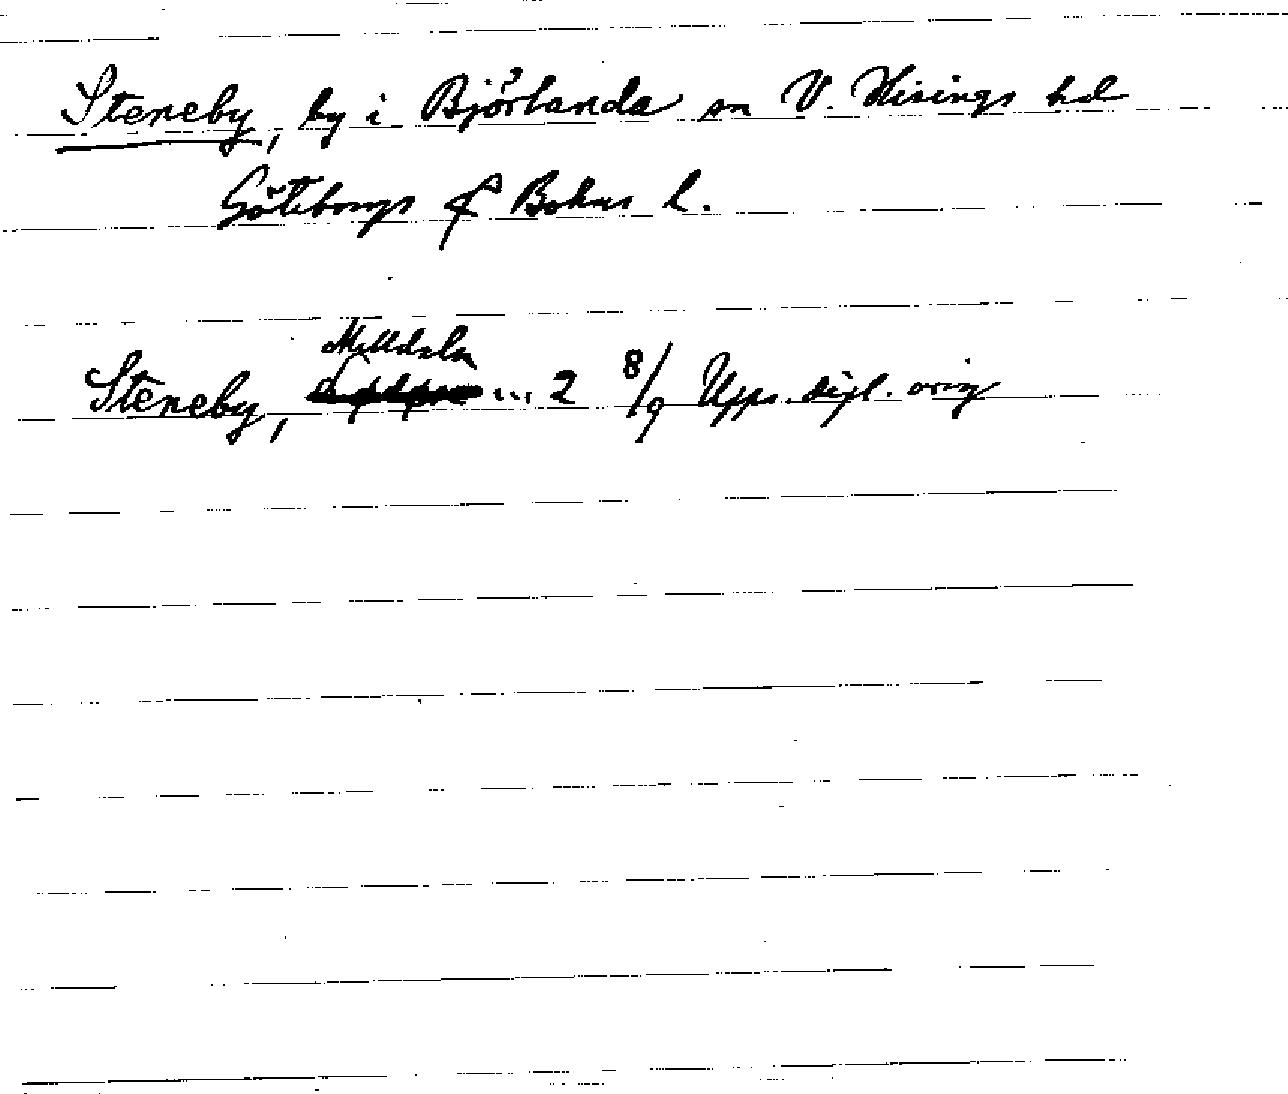 Steneby, by i Björlanda sn V. Hisings hd
Göteborgs & Bohus l.
Steneby, ... 2 8/9 Upps. dipl. orig